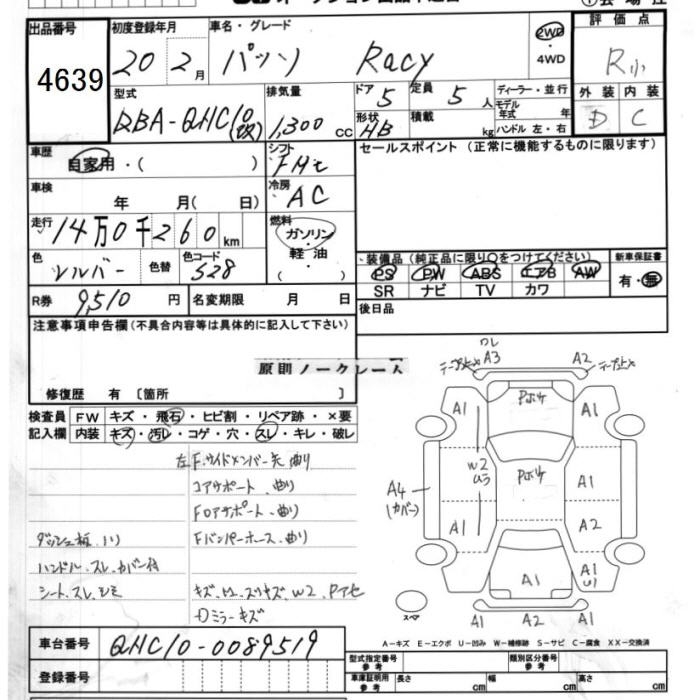 出品番号 初度登録年月 車名・グレード 評価点
4639 20 2月 パッソ Racy 2WD ・4WD R
型式 排気量 ドア 定員 ディーラー・並行 外装 内装
DBA-QNC10(改) 1,300 cc 5 5人 モデル年式 年 D C
形状 HB 積載 kg ハンドル 左・右
車歴 自家用・( ) シフト FAT セールスポイント(正常に機能するものに限ります)
車検 年 月( 日) 冷房 AC
走行 14万0千260km 燃料 ガソリン・軽油・( )
色 シルバー 色替 色コード S28 装備品(純正品に限り○をつけてください) 新車保証書
PS PW ABS エアB AW 有・無
SR ナビ TV カワ
R券 9,510円 名変期限 月 日 後日品
注意事項申告欄(不具合内容等は具体的に記入して下さい)
原則ノークレーム
修復歴 有〔箇所 〕
検査員 FW キズ・飛石・ヒビ割・リペア跡・×要
記入欄 内装 キズ・汚レ・コゲ・穴・スレ・キレ・破レ
左F.サイドメンバー先 曲り
コアサポート.曲り
Fロアサポート.曲り
ダッシュ板.ハリ Fバンパーホース.曲り
ハンドル.スレ.カバー付
シート.スレ.シミ キズ、W2、Pアセ
Dミラーキズ
ワレ
テープ止メ A3 A2 テープ止メ
Pボケ
A1 A1
W2
ムラ
Pボケ
A1
A4
(カバー)
A1 A2
A1 A1
U1
スペア
A1 A2 A1
A-キズ E-エクボ U-凹み W-補修跡 S-サビ C-腐食 XX-交換済
車台番号 QNC10-0089519
型式指定番号 参考 類別区分番号 参考
登録番号 車庫証明用 参考 長さ cm 幅 cm 高さ cm